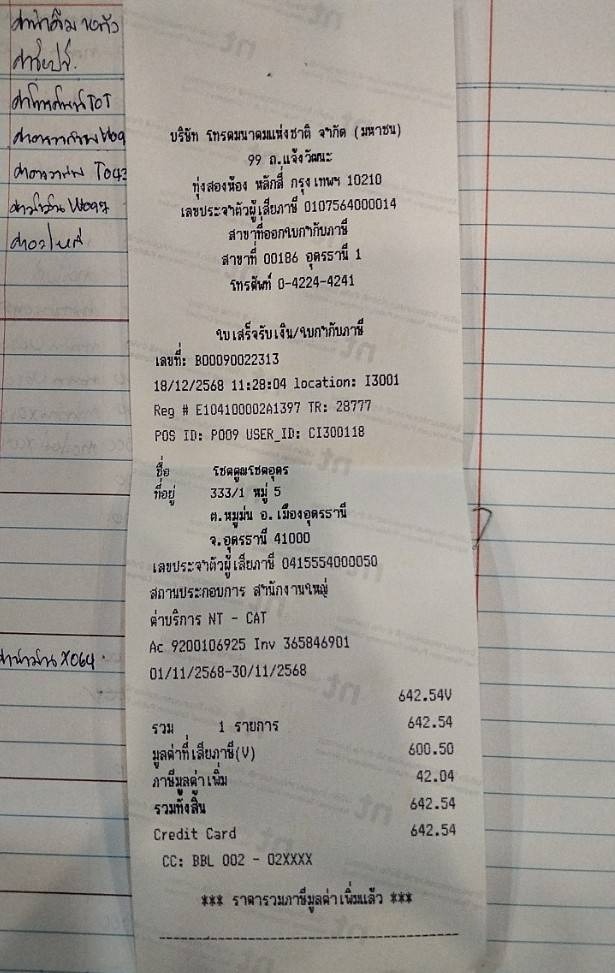 ค่าโทรศัพท์ TOT
บริษัท โทรคมนาคมแห่งชาติ จำกัด (มหาชน)
99 ถ.แจ้งวัฒนะ
ทุ่งสองห้อง หลักสี่ กรุงเทพฯ 10210
เลขประจำตัวผู้เสียภาษี 0107564000014
สาขาที่ออกใบกำกับภาษี
สาขาที่ 00186 อุดรธานี 1
โทรศัพท์ 0-4224-4241
ใบเสร็จรับเงิน/ใบกำกับภาษี
เลขที่: B00090022313
18/12/2568 11:28:04 location: I3001
Reg # E104100002A1397 TR: 28777
POS ID: P009 USER_ID: CI300118
ชื่อ โชคคูณโชคอุดร
ที่อยู่ 333/1 หมู่ 5
ต.หมูม่น อ.เมืองอุดรธานี
จ.อุดรธานี 41000
เลขประจำตัวผู้เสียภาษี 0415554000050
สถานประกอบการ สำนักงานใหญ่
ค่าบริการ NT - CAT
Ac 9200106925 Inv 365846901
01/11/2568-30/11/2568
642.54V
รวม 1 รายการ 642.54
มูลค่าที่เสียภาษี(V) 600.50
ภาษีมูลค่าเพิ่ม 42.04
รวมทั้งสิ้น 642.54
Credit Card 642.54
CC: BBL 002 - 02XXXX
*** ราคารวมภาษีมูลค่าเพิ่มแล้ว ***